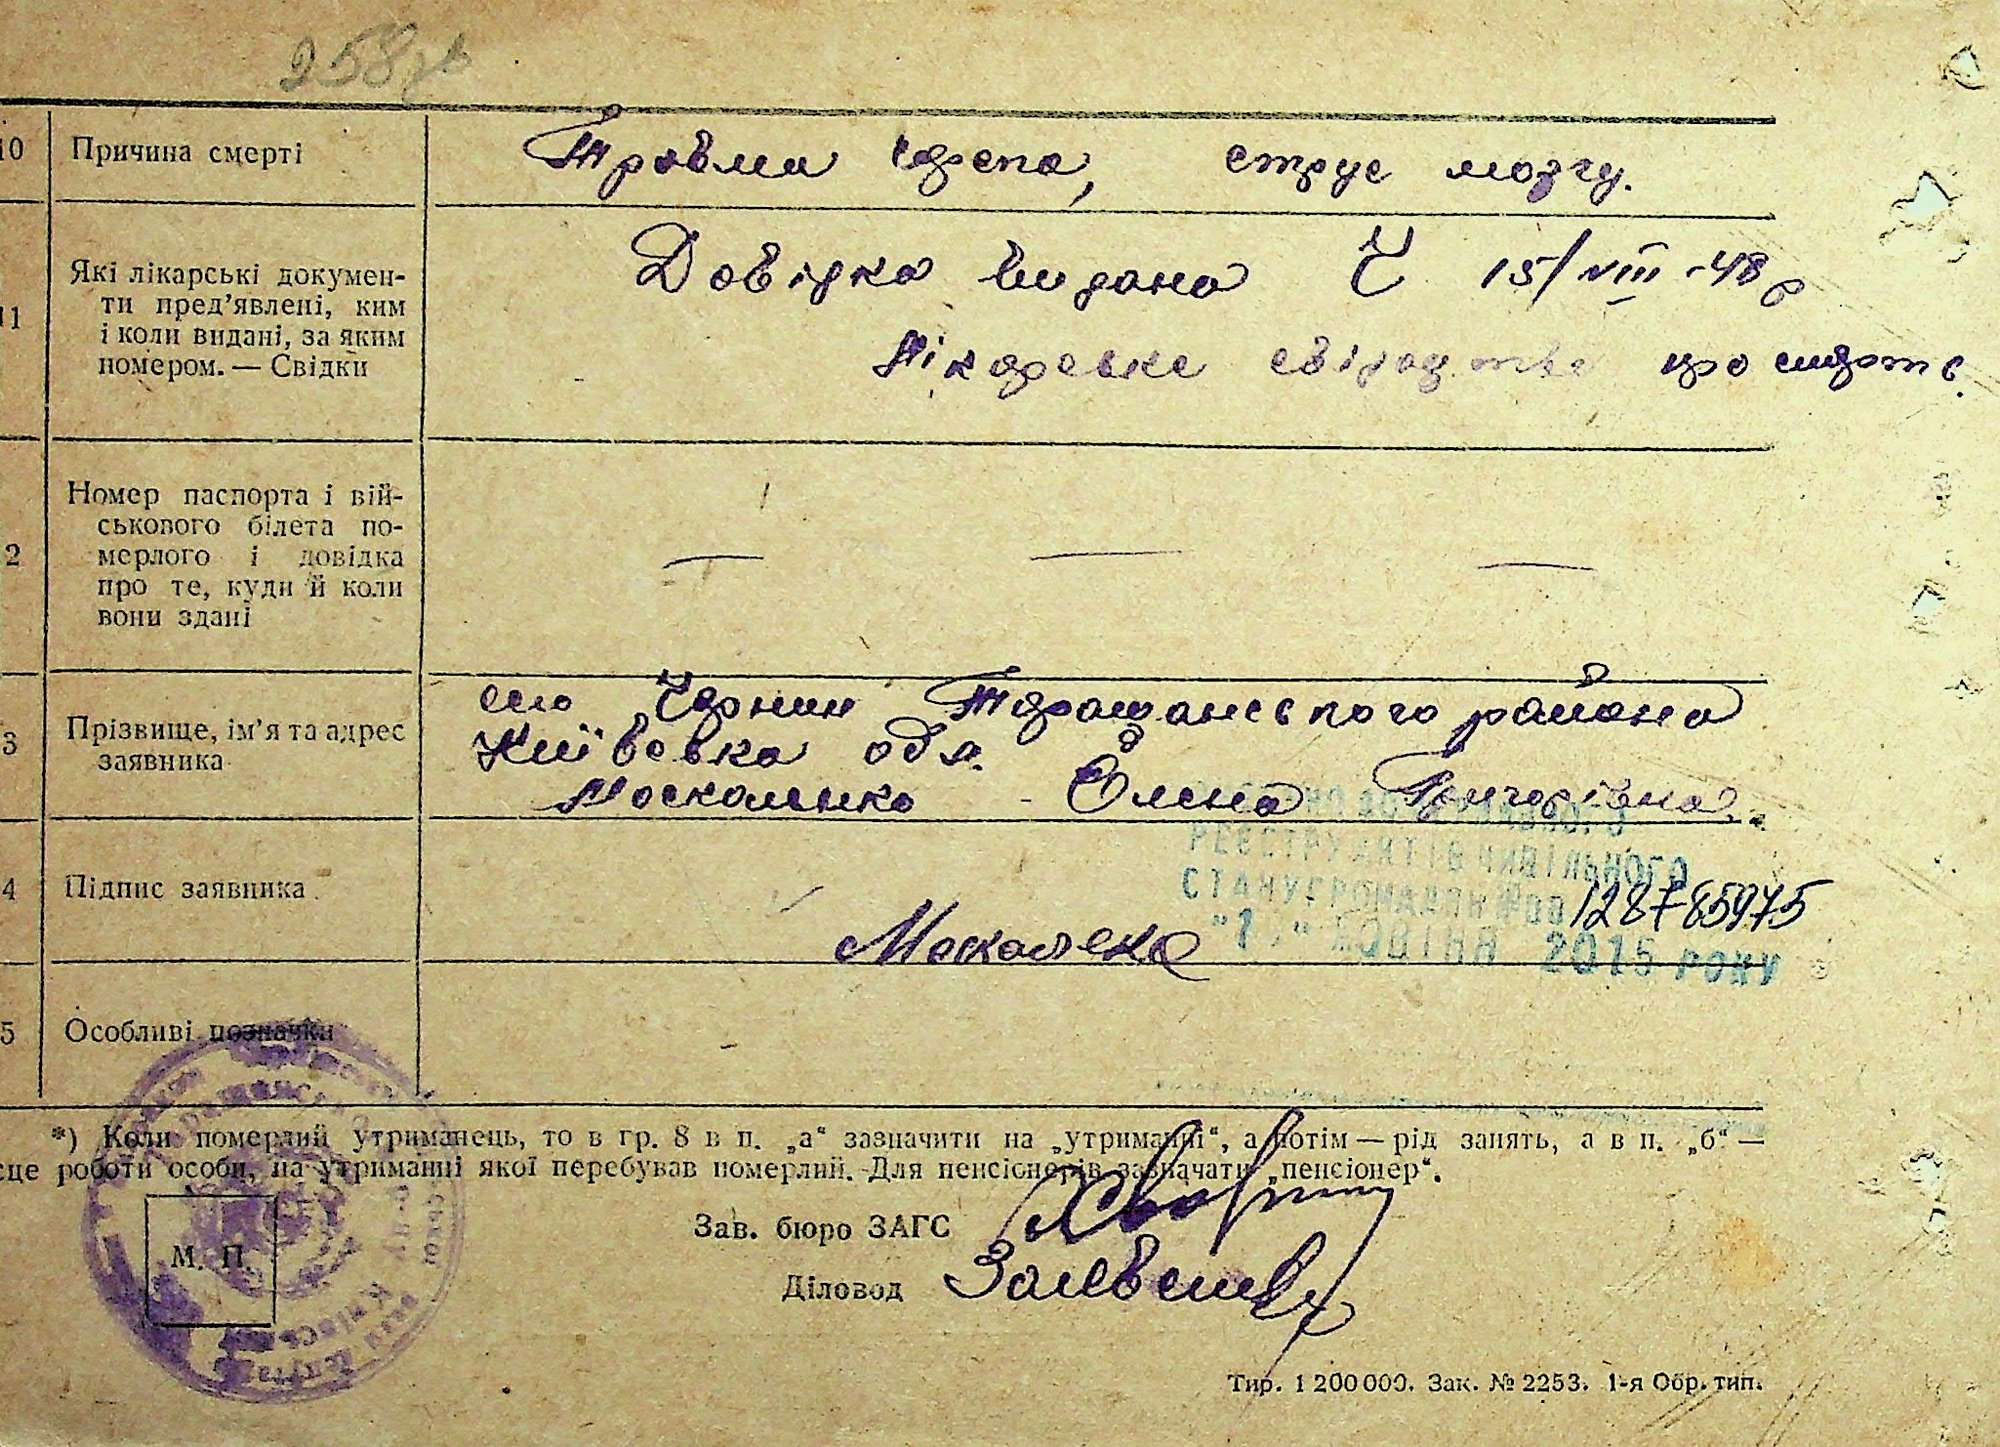 258
10 Причина смерті Травма черепа, струс мозгу.
11 Які лікарські докумен-
ти пред’явлені, ким
і коли видані, за яким
номером. — Свідки
Довідка видана 15/VIII-48р
Лікарське свідоцтво про смерть.
2 Номер паспорта і вій-
ськового білета по-
мерлого і довідка
про те, куди й коли
вони здані
— — —
3 Прізвище, ім’я та адрес
заявника
село Чернин Таращанського района
Київська обл.
Москаленко Олена Григорівна.
РЕЄСТРУ АКТІВ ЦИВІЛЬНОГО
СТАНУ ГРОМАДЯН 128785975
ЖОВТНЯ 2015 РОКУ
4 Підпис заявника Москаленко
5 Особливі позначки
*) Коли померлий утриманець, то в гр. 8 в п. „а“ зазначити на „утриманні“, а потім — рід занять, а в п. „б“ —
сце роботи особи, на утриманні якої перебував померлий. Для пенсіонерів зазначати „пенсіонер“.
М. П.
Зав. бюро ЗАГС
Діловод
Тир. 1 200 000. Зак. № 2253. 1-я Обр. тип.